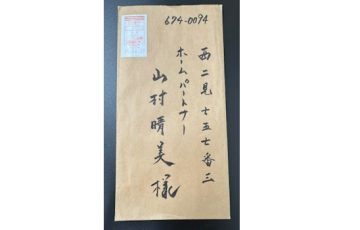 674-0094
西二見 七五七番三
ホームパートナー
山村晴美様